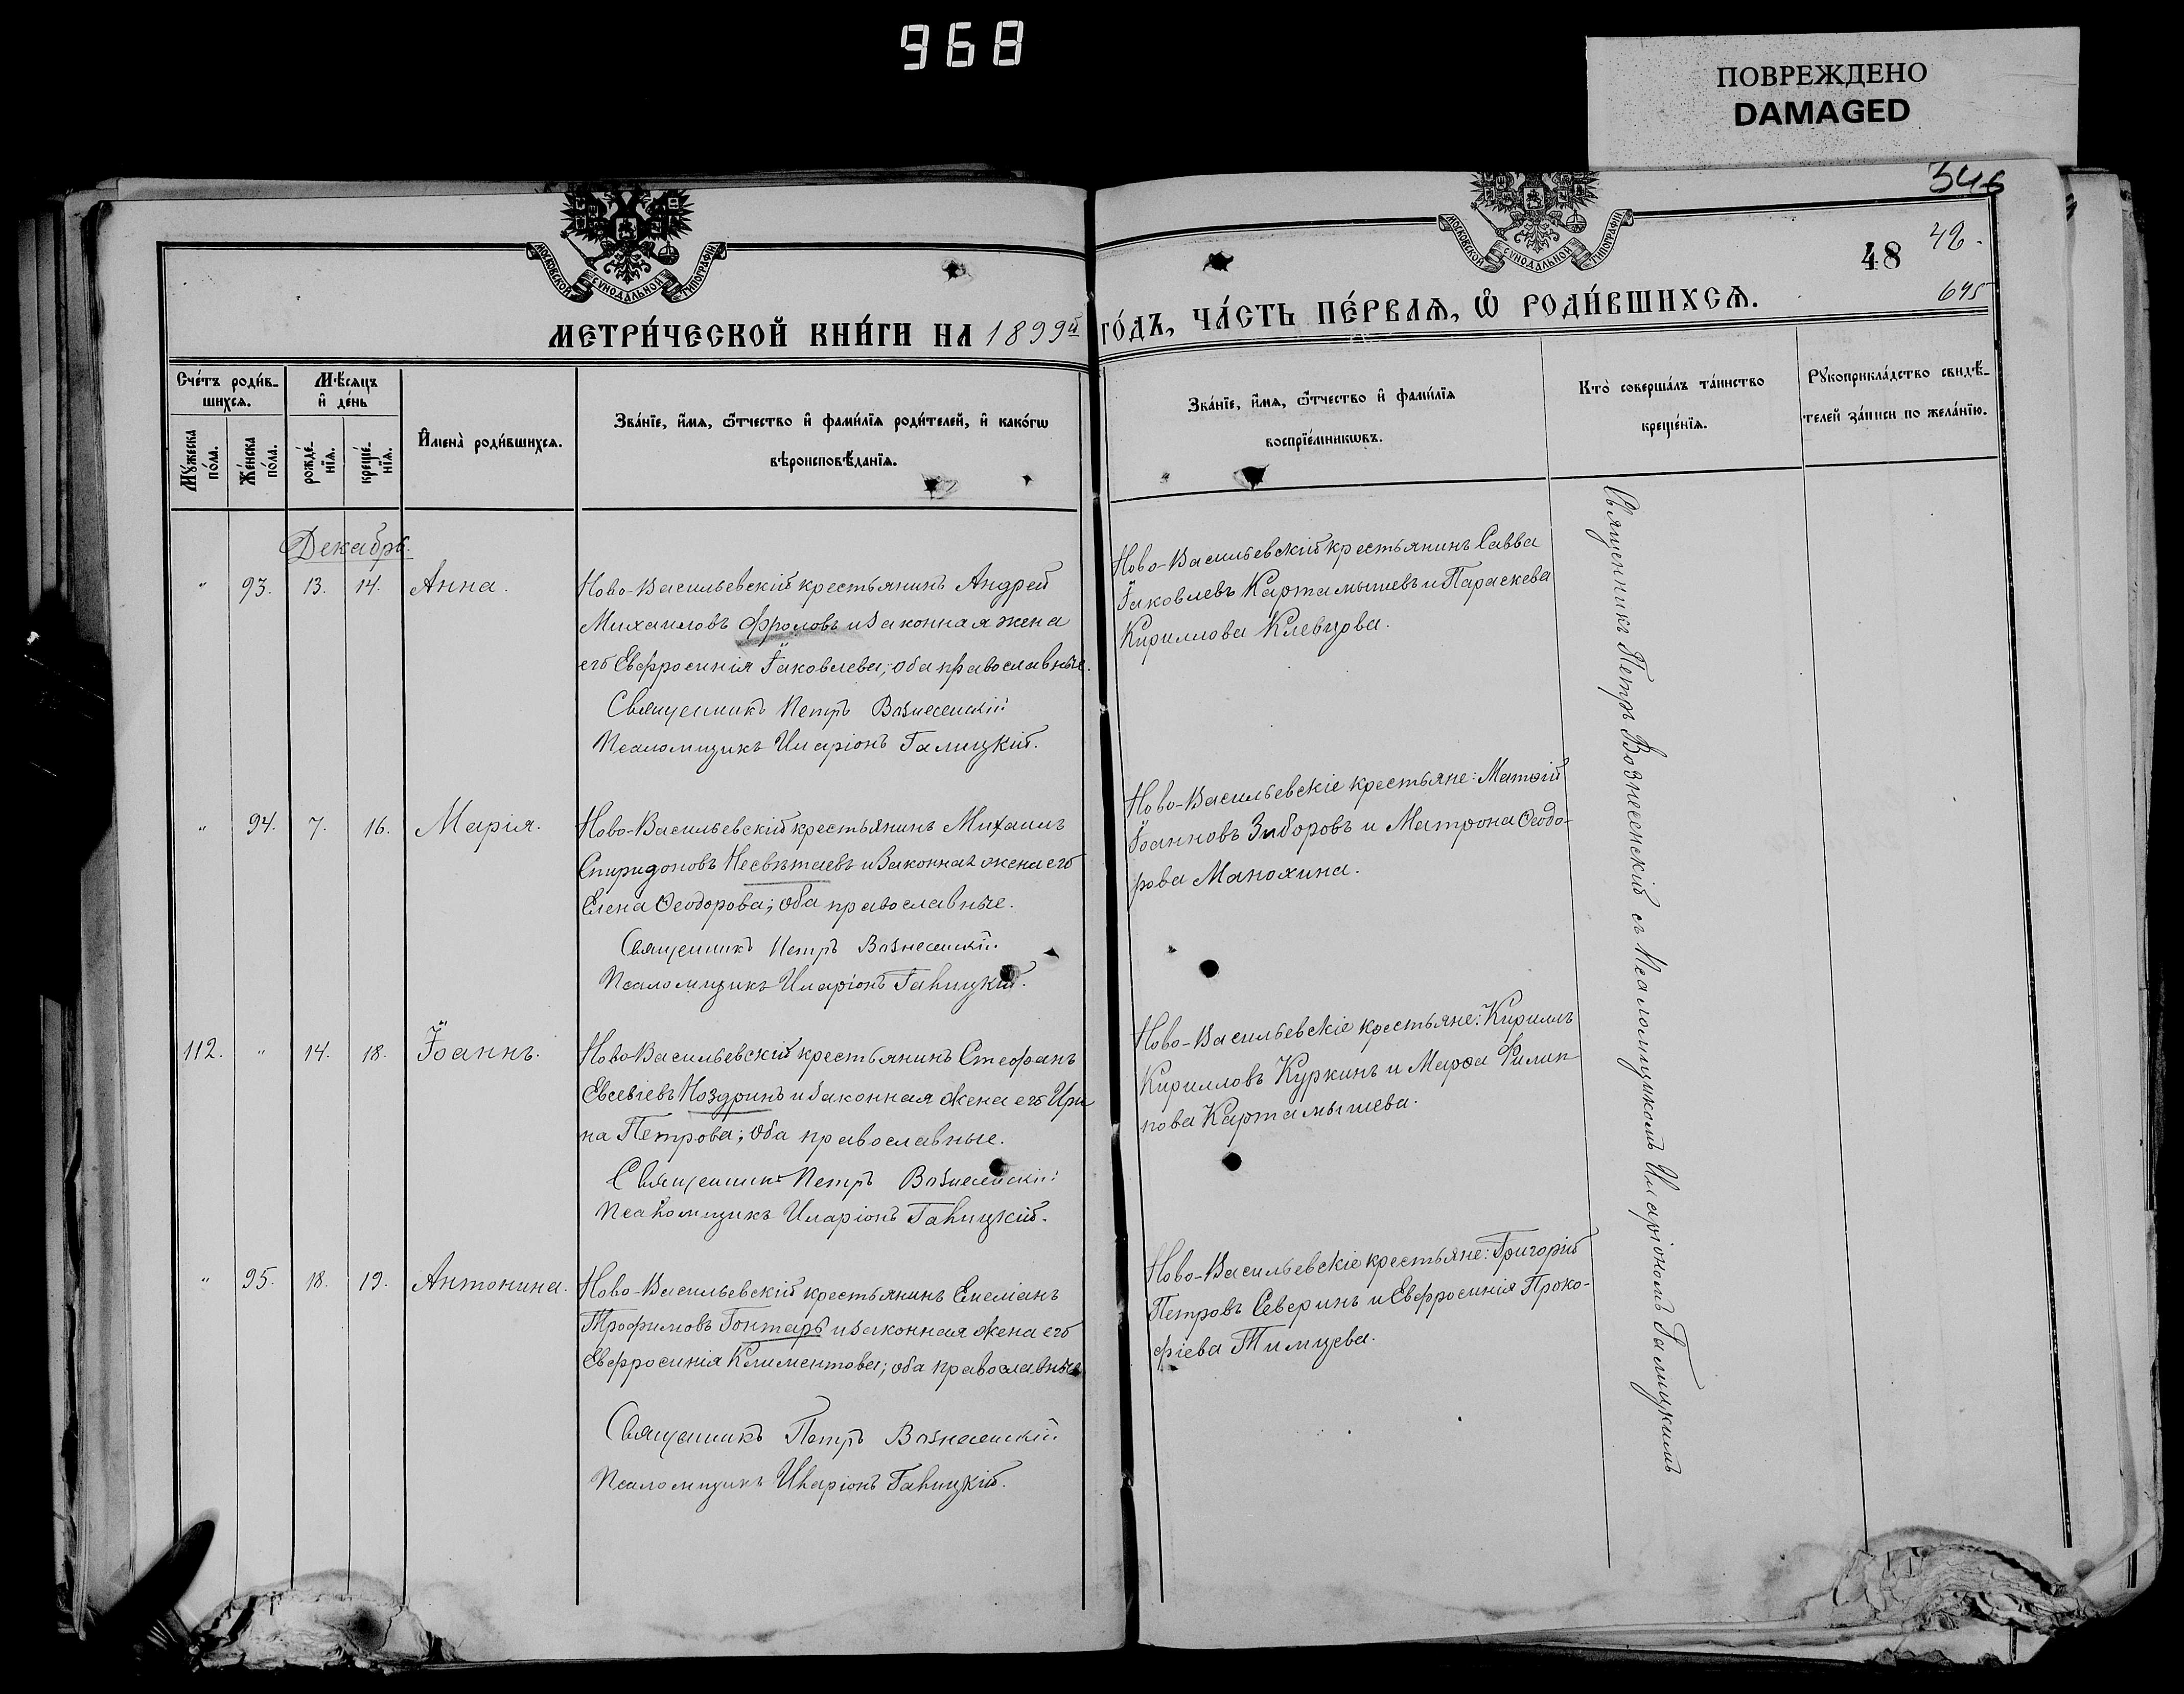 968
ПОВРЕЖДЕНО
DAMAGED
346
МОСКОВСКОЙ СУНОДАЛЬНОЙ ТИПОГРАФІИ
МОСКОВСКОЙ СУНОДАЛЬНОЙ ТИПОГРАФІИ
48
48.
695
МЕТРИ́ЧЕСКОЙ КНИ́ГИ НА 1899й
ГО́ДЪ, ЧА́СТЬ ПЕ́РВАѦ, Ѡ҆ РОДИ́ВШИХСѦ.
Сче́тъ роди́в-
шихсѧ.
Мꙋ́жеска
по́ла.
Же́нска
по́ла.
Мѣ́сѧцъ
и҆ де́нь
рожде́-
нїѧ.
креще́-
нїѧ.
И҆мена̀ роди́вшихсѧ.
Зва́нїе, и҆́мѧ, ѻ҆́тчество и҆ фами́лїѧ роди́телей, и҆ како́гѡ
вѣроисповѣ́данїѧ.
Зва́нїе, и҆́мѧ, ѻ҆́тчество и҆ фами́лїѧ
воспрїе́мникѡвъ.
Кто̀ соверша́лъ та́инство
креще́нїѧ.
Рꙋкоприкла́дство свидѣ́-
телей за́писи по жела́нїю.
Декабрь.
" 93. 13. 14. Анна.
Ново-Васильевскій крестьянинъ Андрей
Михаиловъ Фроловъ и законная жена
его Евфросинія Іаковлева; оба православные.
Священникъ Петръ Вознесенскій
Псаломщикъ Иларіонъ Галицкій.
Ново-Васильевскій крестьянинъ Савва
Іаковлевъ Картамышевъ и Параскева
Кириллова Клевцова.
Священникъ Петръ Вознесенскій съ Псаломщикомъ Иларіономъ Галицкимъ
" 94. 7. 16. Марія.
Ново-Васильевскій крестьянинъ Михаилъ
Спиридоновъ Несвѣтаевъ и законная жена его
Елена Ѳеодорова; оба православные.
Священникъ Петръ Вознесенскій
Псаломщикъ Иларіонъ Галицкій.
Ново-Васильевскіе крестьяне: Матѳій
Іоанновъ Зиборовъ и Матрона Ѳеодо-
рова Манохина.
112. " 14. 18. Іоаннъ.
Ново Васильевскій крестьянинъ Стефанъ
Евсевіевъ Ноздринъ и законная жена его Ири
на Петрова; оба православные.
Священникъ Петръ Вознесенскій
Псаломщикъ Иларіонъ Галицкій.
Ново-Васильевскіе крестьяне: Кириллъ
Кирилловъ Куркинъ и Марѳа Филип
пова Картамышева.
" 95. 18. 19. Антонина.
Ново-Васильевскій крестьянинъ Емеліанъ
Трофимовъ Гонтарь и законная жена его
Евфросинія Климентова; оба православные
Священникъ Петръ Вознесенскій
Псаломщикъ Иларіонъ Галицкій.
Ново-Васильевскіе крестьяне: Григорій
Петровъ Северинъ и Евфросинія Проко-
фіева Тимцева.